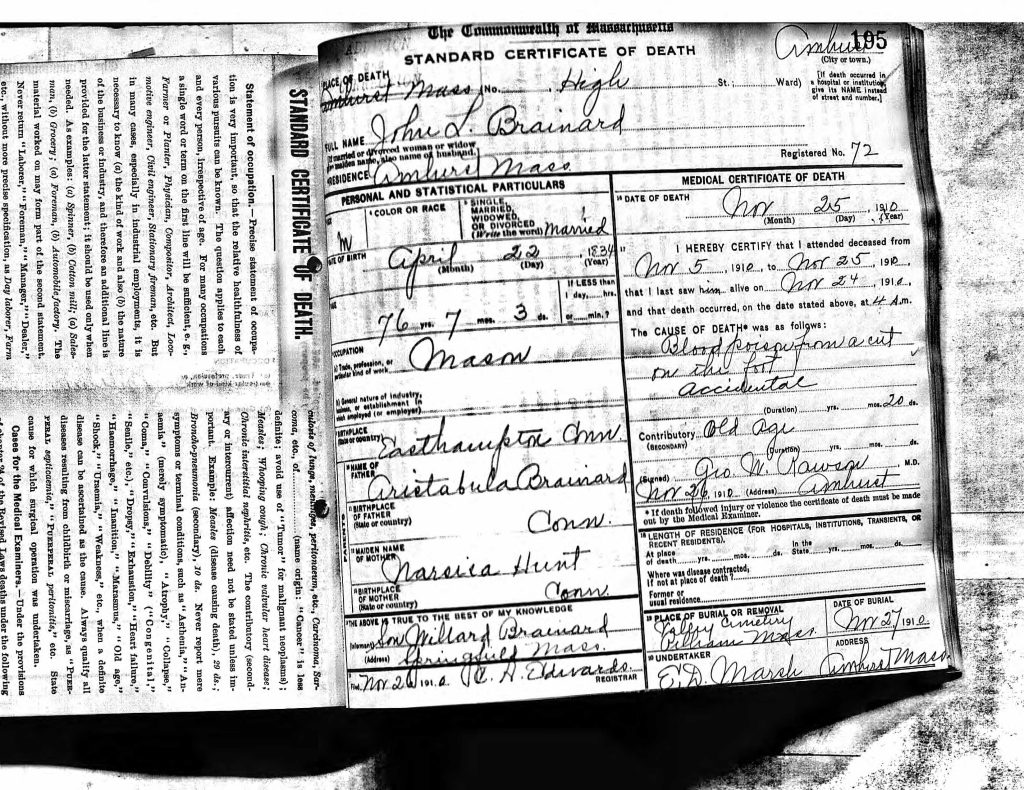 Statement of occupation.—Precise statement of occupa-
tion is very important, so that the relative healthfulness of
various pursuits can be known. The question applies to each
and every person, irrespective of age. For many occupations
a single word or term on the first line will be sufficient, e. g.,
Farmer or Planter, Physician, Compositor, Architect, Loco-
motive engineer, Civil engineer, Stationary fireman, etc. But
in many cases, especially in industrial employments, it is
necessary to know (a) the kind of work and also (b) the nature
of the business or industry, and therefore an additional line is
provided for the latter statement; it should be used only when
needed. As examples: (a) Spinner, (b) Cotton mill; (a) Sales-
man, (b) Grocery; (a) Foreman, (b) Automobile factory. The
material worked on may form part of the second statement.
Never return "Laborer," "Foreman," "Manager," "Dealer,"
etc., without more precise specification, as Day laborer, Farm
STANDARD CERTIFICATE OF DEATH.
culosis of lungs, meninges, peritonaeum, etc., Carcinoma, Sar-
coma, etc., of (name origin: "Cancer" is less
definite; avoid use of "Tumor" for malignant neoplasms);
Measles; Whooping cough; Chronic valvular heart disease;
Chronic interstitial nephritis, etc. The contributory (second-
ary or intercurrent) affection need not be stated unless im-
portant. Example: Measles (disease causing death), 29 ds.;
Broncho-pneumonia (secondary), 10 ds. Never report mere
symptoms or terminal conditions, such as "Asthenia," "An-
aemia" (merely symptomatic), "Atrophy," "Collapse,"
"Coma," "Convulsions," "Debility" ("Congenital,"
"Senile," etc.), "Dropsy," "Exhaustion," "Heart failure,"
"Haemorrhage," "Inanition," "Marasmus," "Old age,"
"Shock," "Uraemia," "Weakness," etc., when a definite
disease can be ascertained as the cause. Always qualify all
diseases resulting from childbirth or miscarriage, as "PUER-
PERAL septicaemia," "PUERPERAL peritonitis," etc. State
cause for which surgical operation was undertaken.
Cases for the Medical Examiners.—Under the provisions
of the Revised Laws deaths under the following
The Commonwealth of Massachusetts
STANDARD CERTIFICATE OF DEATH
Amherst 195
(City or town.)
PLACE OF DEATH
Amherst Mass No. High St.; Ward)
[If death occurred in
a hospital or institution
give its NAME instead
of street and number.]
FULL NAME John L. Brainard
[If married or divorced woman or widow
give maiden name, also name of husband.]
Registered No. 72
RESIDENCE Amherst Mass.
PERSONAL AND STATISTICAL PARTICULARS
COLOR OR RACE
SINGLE,
MARRIED,
WIDOWED,
OR DIVORCED
(Write the word) Married
M
DATE OF BIRTH
April 22 1834
(Month) (Day) (Year)
If LESS than
1 day,....hrs.
or....min.?
76 yrs. 7 mos. 3 ds.
OCCUPATION
(a) Trade, profession, or
particular kind of work
Mason
(b) General nature of industry,
business, or establishment in
which employed (or employer)
BIRTHPLACE
(State or country)
Easthampton Conn.
NAME OF
FATHER
Aristabula Brainard
BIRTHPLACE
OF FATHER
(State or country)
Conn.
MAIDEN NAME
OF MOTHER
Narsica Hunt
BIRTHPLACE
OF MOTHER
(State or country)
Conn.
THE ABOVE IS TRUE TO THE BEST OF MY KNOWLEDGE
(Informant) Son Willard Brainard
(Address) Springfield Mass.
Filed Nov 26 1910 C. H. Edwards
REGISTRAR
MEDICAL CERTIFICATE OF DEATH
DATE OF DEATH
Nov 25 1910
(Month) (Day) (Year)
I HEREBY CERTIFY that I attended deceased from
Nov 5, 1910, to Nov 25, 1910,
that I last saw him alive on Nov 24, 1910,
and that death occurred, on the date stated above, at 4 A.m.
The CAUSE OF DEATH* was as follows:
Blood poison from a cut
on the foot
accidental
(Duration) yrs. mos. 20 ds.
Contributory Old Age
(SECONDARY)
(Duration) yrs. mos. ds.
(Signed) Geo. W. Rawson M.D.
Nov 26, 1910 (Address) Amherst
* If death followed injury or violence the certificate of death must be made
out by the Medical Examiner.
LENGTH OF RESIDENCE (FOR HOSPITALS, INSTITUTIONS, TRANSIENTS, OR
RECENT RESIDENTS).
At place
of death yrs. mos. ds.
In the
State yrs. mos. ds.
Where was disease contracted,
if not at place of death?
Former or
usual residence
PLACE OF BURIAL OR REMOVAL
Valley Cemetery
Pelham Mass.
DATE OF BURIAL
Nov 27 1910
UNDERTAKER
E. D. Marsh
ADDRESS
Amherst Mass